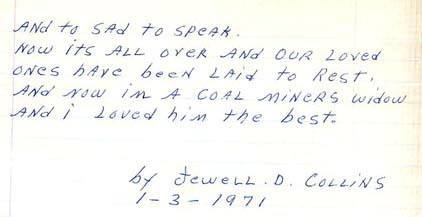 ANd to SAd to SPEAK.
NOW itS ALL OVER ANd OUR LOVEd
ONES hAVE bEEN LAid to REST.
ANd NOW im A COAL MiNERS widow
ANd i LOVEd him thE bEST.
by JEWELL.D. COLLiNS
1-3-1971